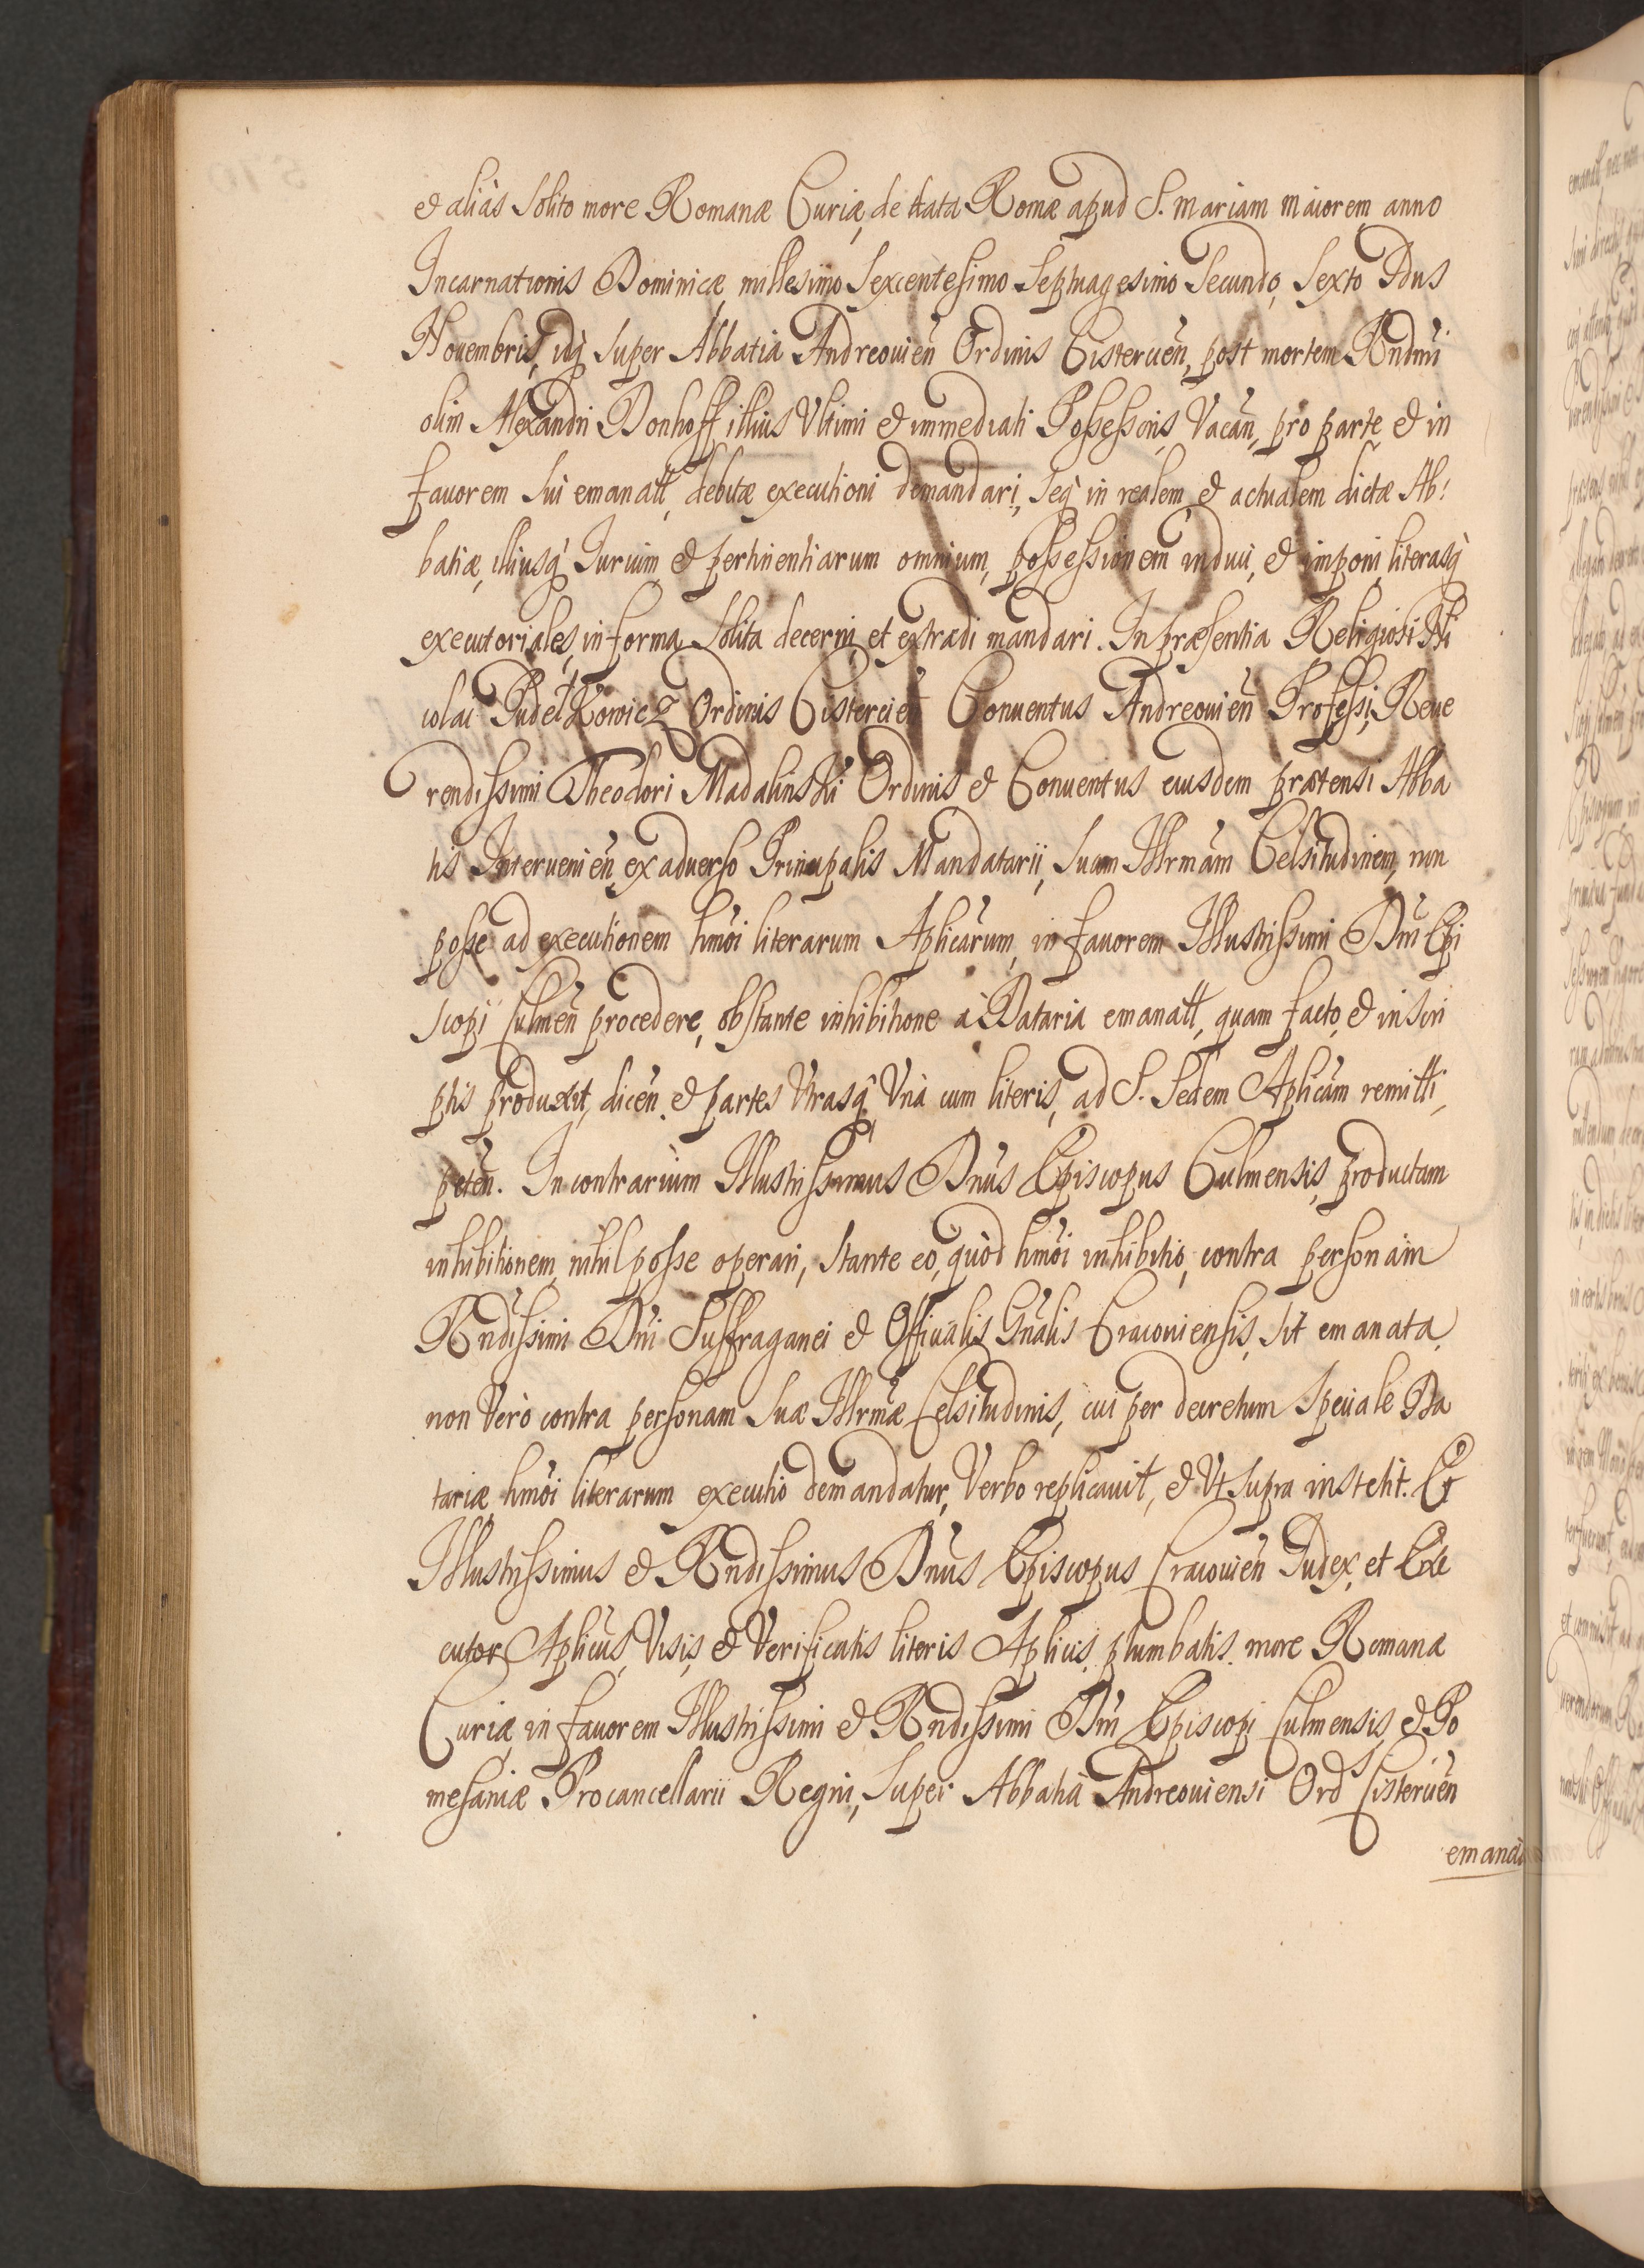 et aliàs solito more Romanæ Curiæ, de data Romæ apud S. Mariam Maiorem anno
Incarnationis Dominicæ millesimo sexcentesimo septuagesimo secundo, sexto Idus
Nouembris, idq́ super Abbatia Andreouien̄ Ordinis Cistercien̄, post mortem Rndmi
olim Alexandri Donhoff illius Vltimi et immediati Possessoris, Vacan̄, pro parte et in
fauorem sui emanatt, debitæ executioni demandari, seq́ in realem et actualem dictæ Ab:
batiæ, illiusq́ Iurium et pertinentiarum omnium, possessionem induci, et imponi, literasq́
executoriales, in forma solita decerni et extradi mandari. In præsentia Religiosi Ni
colai Pudełkowicz Ordinis Cistercien̄ Conuentus Andreouien̄ Professi, Reue
rendissimi Theodori Madalinski Ordinis et Conuentus eiusdem prætensi Abba
tis Interuenien̄, ex aduerso Principalis Mandatarii, suam Illrmam Celsitudinem, non
posse ad executionem hmōi literarum Aplicarum, in fauorem Illustrissimi Dni Epi
scopi Culmen̄ procedere, obstante inhibitione à Dataria emanatt, quam facto, et in scri
ptis produxit, dicen̄ et partes Vtrasq́ Vnà cum literis, ad S. Sedem Aplicam remitti,
peten̄. In contrarium Illustrissimus Dnus Episcopus Culmensis, productam
inhibitionem, nihil posse operari, stante eo, quòd hmōi inhibitio, contra personam
Rndissimi Dni Suffraganei et Officialis Gnalis Cracouiensis, sit emanata,
non Verò contra personam suæ Illrmæ Celsitudinis, cui per decretum speciale Da
tariæ hmōi literarum executio demandatur, Verbo replicauit, et Vt supra institit. Et
Illustrissimus et Rndissimus Dnus Episcopus Cracouien̄ Iudex, et Exe
cutor Aplicus, Visis, et Verificatis literis Aplicis, plumbatis more Romanæ
Curiæ in fauorem Illustrissimi et Rndissimi Dni Episcopi Culmensis, et Po
mesaniæ Procancellarii Regni, super Abbatia Andreouiensi Ord Cistercien̄